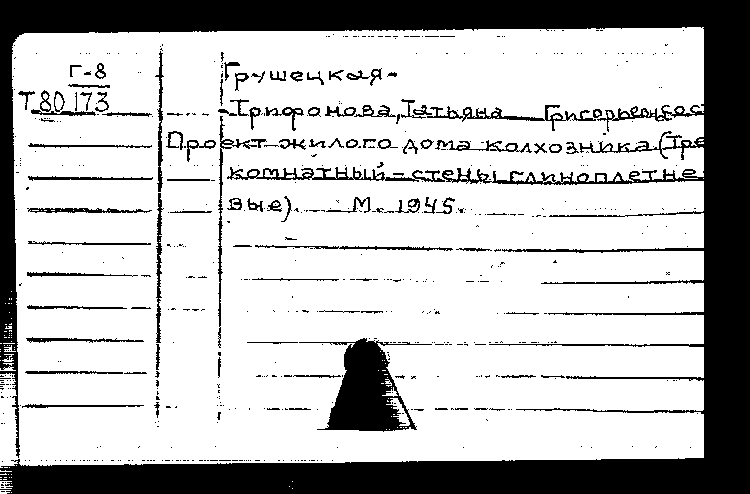 Г-8
Т 80 173
Грушецкая-
Трифонова, Татьяна
Проект жилого дома колхозника (Тре
комнатный - стены глиноплетне
вые). М. 1945.